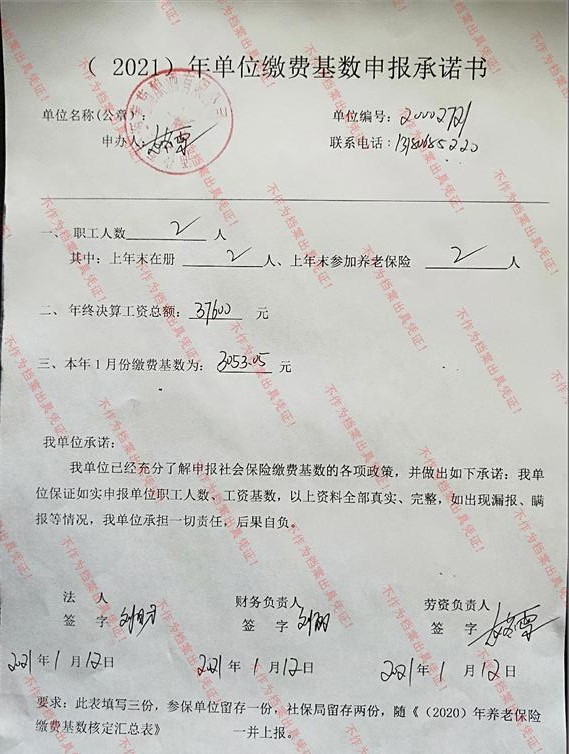 （ 2021）年单位缴费基数申报承诺书
单位名称(公章)： 单位编号：20002721
申办人： 联系电话：
一、 职工人数 2 人
其中：上年末在册 2 人、上年末参加养老保险 2 人
二、 年终决算工资总额：37600 元
三、本年1月份缴费基数为：3053.05 元
我单位承诺：
我单位已经充分了解申报社会保险缴费基数的各项政策，并做出如下承诺：我单
位保证如实申报单位职工人数、工资基数，以上资料全部真实、完整，如出现漏报、瞒
报等情况，我单位承担一切责任，后果自负。
法 人 财务负责人 劳资负责人
签 字 签 字 签 字
2021年1月12日 2021年1月12日 2021年1月12日
要求：此表填写三份，参保单位留存一份，社保局留存两份，随《（2020）年养老保险
缴费基数核定汇总表》 一并上报。
不作为档案出具凭证！